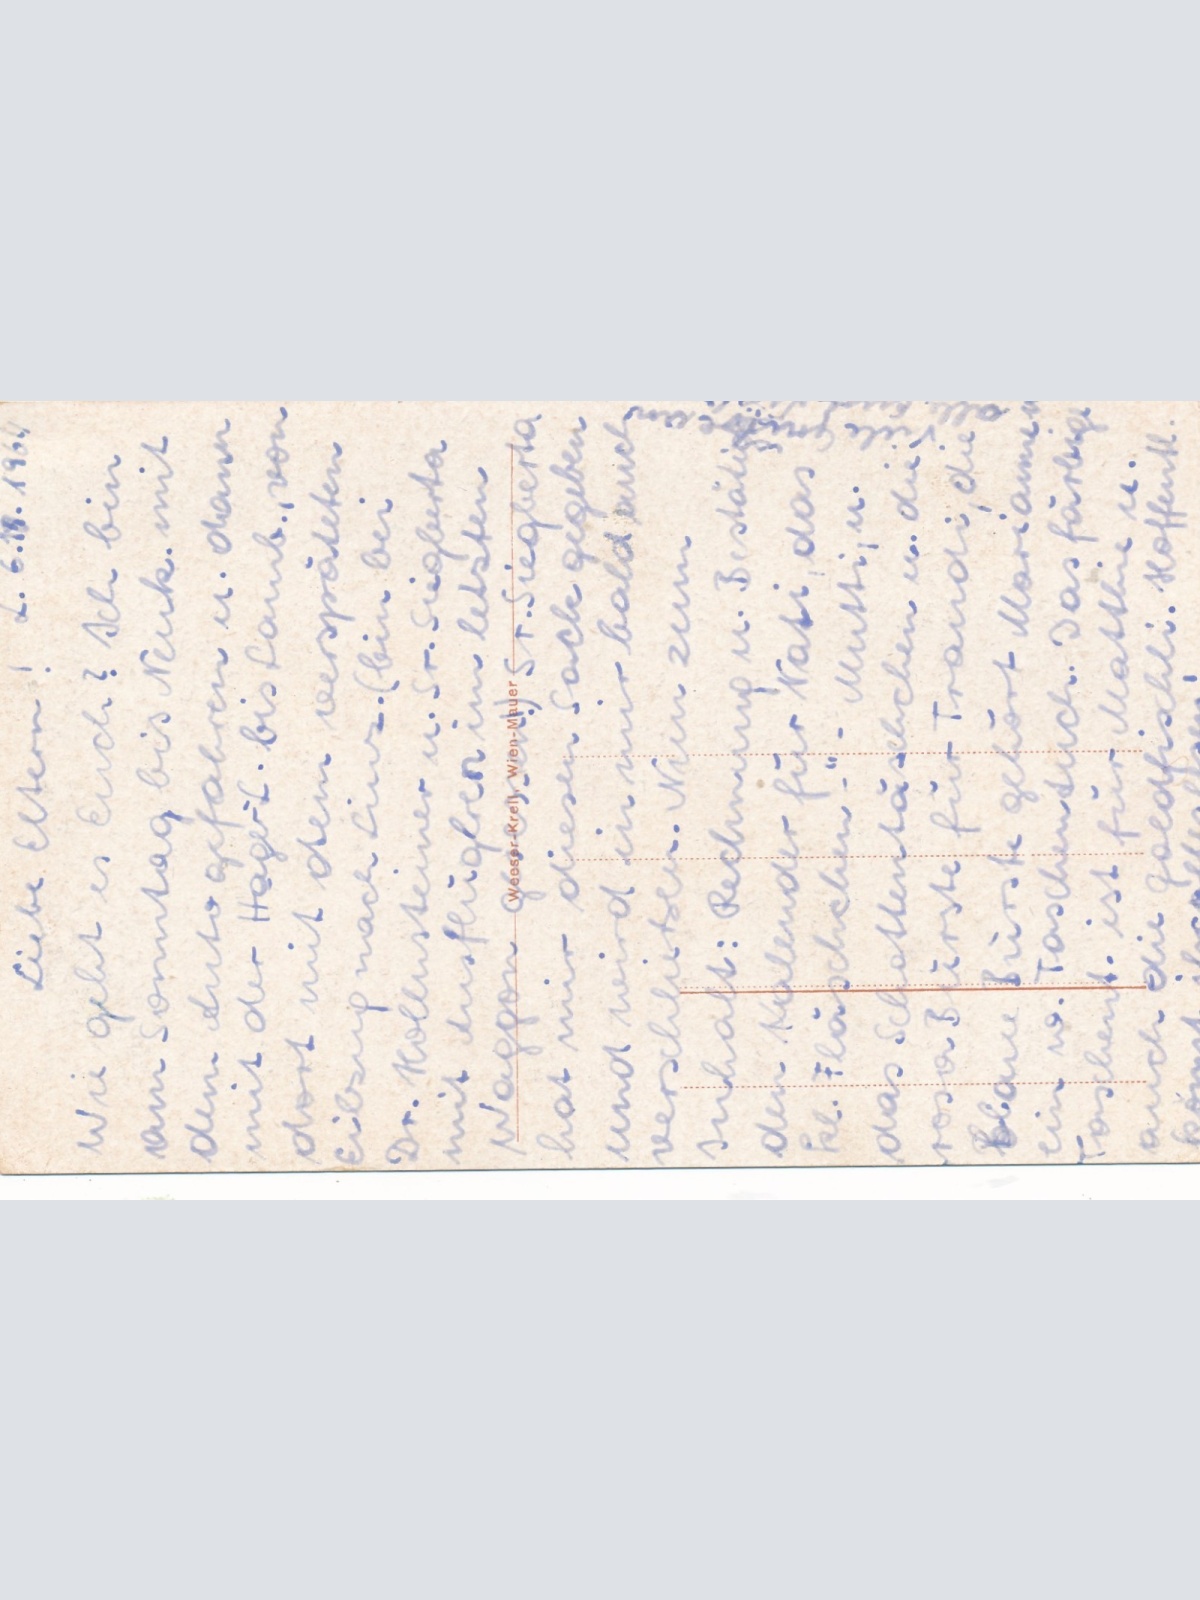 L. 6. III. 1964
Liebe Eltern!
Wie geht es Euch? Ich bin
am Sonntag bis Neuk. mit
dem Auto gefahren u. dann
mit der Hager L. bis Lamb., von
dort mit dem verspäteten
Eilzug nach Linz. (bin bei
Dr. Hollnsteiner u. Sr. Siegberta
mit Ausflüglren im letzten
Waggon Sr. Siegberta
hat mir diesen Sack gegeben
und wird ein mir bald auch
verschicken. Nun zum
Inhalt: Rechnung u. Bestätig
den Kalender für Vati, das
kl. Fläschchen "- Mutti, u.
das Schottentäschchen u. die
rosa Bürste für Traudi, die
blaue Bürste gehört Marianne
ein w. Taschentuch. Das färbige
Taschent. ist für Matthie u.
auch die Goldfischli. Hoffentl.
Viele Grüße an
Weeser-Krell, Wien-Mauer